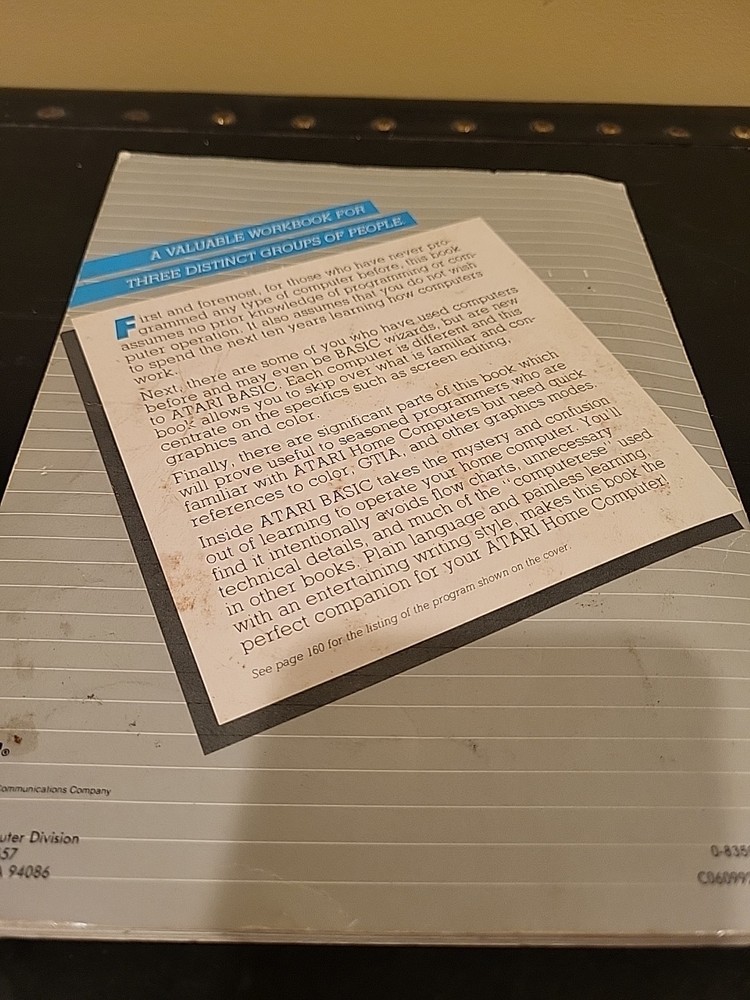 A VALUABLE WORKBOOK FOR
THREE DISTINCT GROUPS OF PEOPLE
First and foremost, for those who have never pro-
grammed any type of computer before, this book
assumes no prior knowledge of programming or com-
puter operation. It also assumes that you do not wish
to spend the next ten years learning how computers
work.
Next, there are some of you who have used computers
before and may even be BASIC wizards, but are new
to ATARI BASIC. Each computer is different and this
book allows you to skip over what is familiar and con-
centrate on the specifics such as screen editing,
graphics and color.
Finally, there are significant parts of this book which
will prove useful to seasoned programmers who are
familiar with ATARI Home Computers but need quick
references to color, GTIA, and other graphics modes.
Inside ATARI BASIC takes the mystery and confusion
out of learning to operate your home computer. You'll
find it intentionally avoids flow charts, unnecessary
technical details, and much of the "computerese" used
in other books. Plain language and painless learning,
with an entertaining writing style, makes this book the
perfect companion for your ATARI Home Computer!
See page 160 for the listing of the program shown on the cover.
®
Communications Company
uter Division
57
A 94086
0-835
C06099